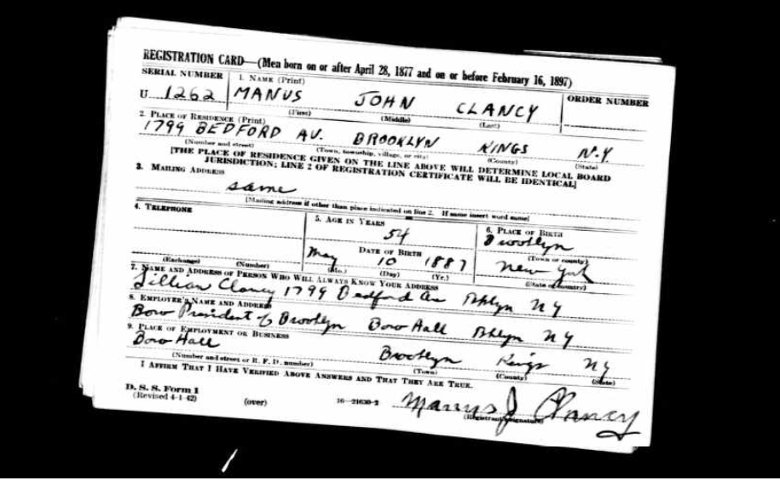 REGISTRATION CARD—(Men born on or after April 28, 1877 and on or before February 16, 1897)
SERIAL NUMBER 1. NAME (Print) ORDER NUMBER
U 1262 MANUS JOHN CLANCY
(First) (Middle) (Last)
2. PLACE OF RESIDENCE (Print)
1799 BEDFORD AV. BROOKLYN KINGS N.Y.
(Number and street) (Town, township, village, or city) (County) (State)
[THE PLACE OF RESIDENCE GIVEN ON THE LINE ABOVE WILL DETERMINE LOCAL BOARD
JURISDICTION; LINE 2 OF REGISTRATION CERTIFICATE WILL BE IDENTICAL]
3. MAILING ADDRESS
same
[Mailing address if other than place indicated on line 2. If same insert word same]
4. TELEPHONE 5. AGE IN YEARS 6. PLACE OF BIRTH
54 Brooklyn
DATE OF BIRTH (Town or county)
May 10 1887 New York
(Exchange) (Number) (Mo.) (Day) (Yr.) (State or country)
7. NAME AND ADDRESS OF PERSON WHO WILL ALWAYS KNOW YOUR ADDRESS
Lillian Clancy 1799 Bedford Av Bklyn NY
8. EMPLOYER'S NAME AND ADDRESS
Boro President of Brooklyn Boro Hall Bklyn NY
9. PLACE OF EMPLOYMENT OR BUSINESS
Boro Hall Brooklyn Kings NY
(Number and street or R. F. D. number) (Town) (County) (State)
I AFFIRM THAT I HAVE VERIFIED ABOVE ANSWERS AND THAT THEY ARE TRUE.
D. S. S. Form 1
(Revised 4-1-42) (over) 16—21630-2 Manus J Clancy
(Registrant's signature)